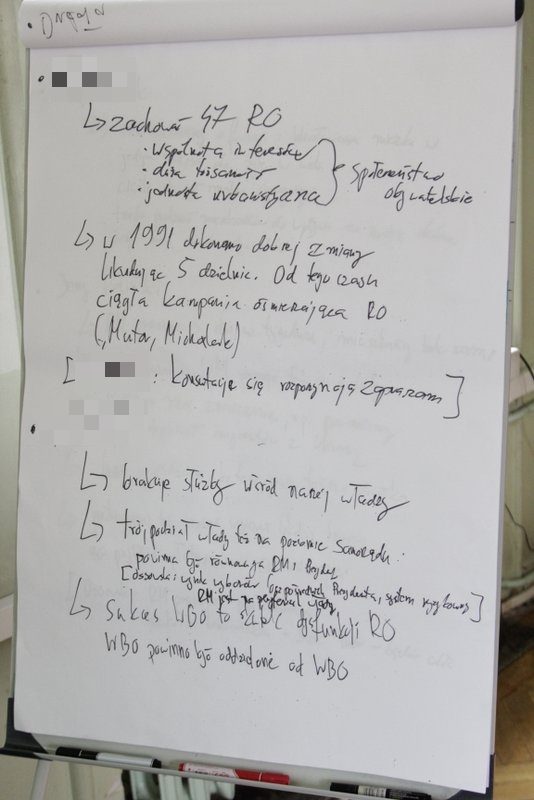 ↳ zachować 47 RO
· wspólnota interesów
· duża tożsamość
· jedność urbanistyczna
społeczeństwo
obywatelskie
↳ w 1991 dokonano dobrej zmiany
likwidując 5 dzielnic. Od tego czasu
ciągła kampania ośmieszająca RO
(Muta, Michalak)
[ : konsultacje się rozpoczynają Zapraszam]
↳ brakuje służby wśród naszej władzy
↳ trójpodział władzy też na poziomie samorządu.
powinna być równowaga RM i Prezydent
wynik wyborów bezpośrednich Prezydenta, system
RM jest na władzy
↳ Sukces WBO to dysfunkcji RO
WBO powinno być oddzielone od WBO